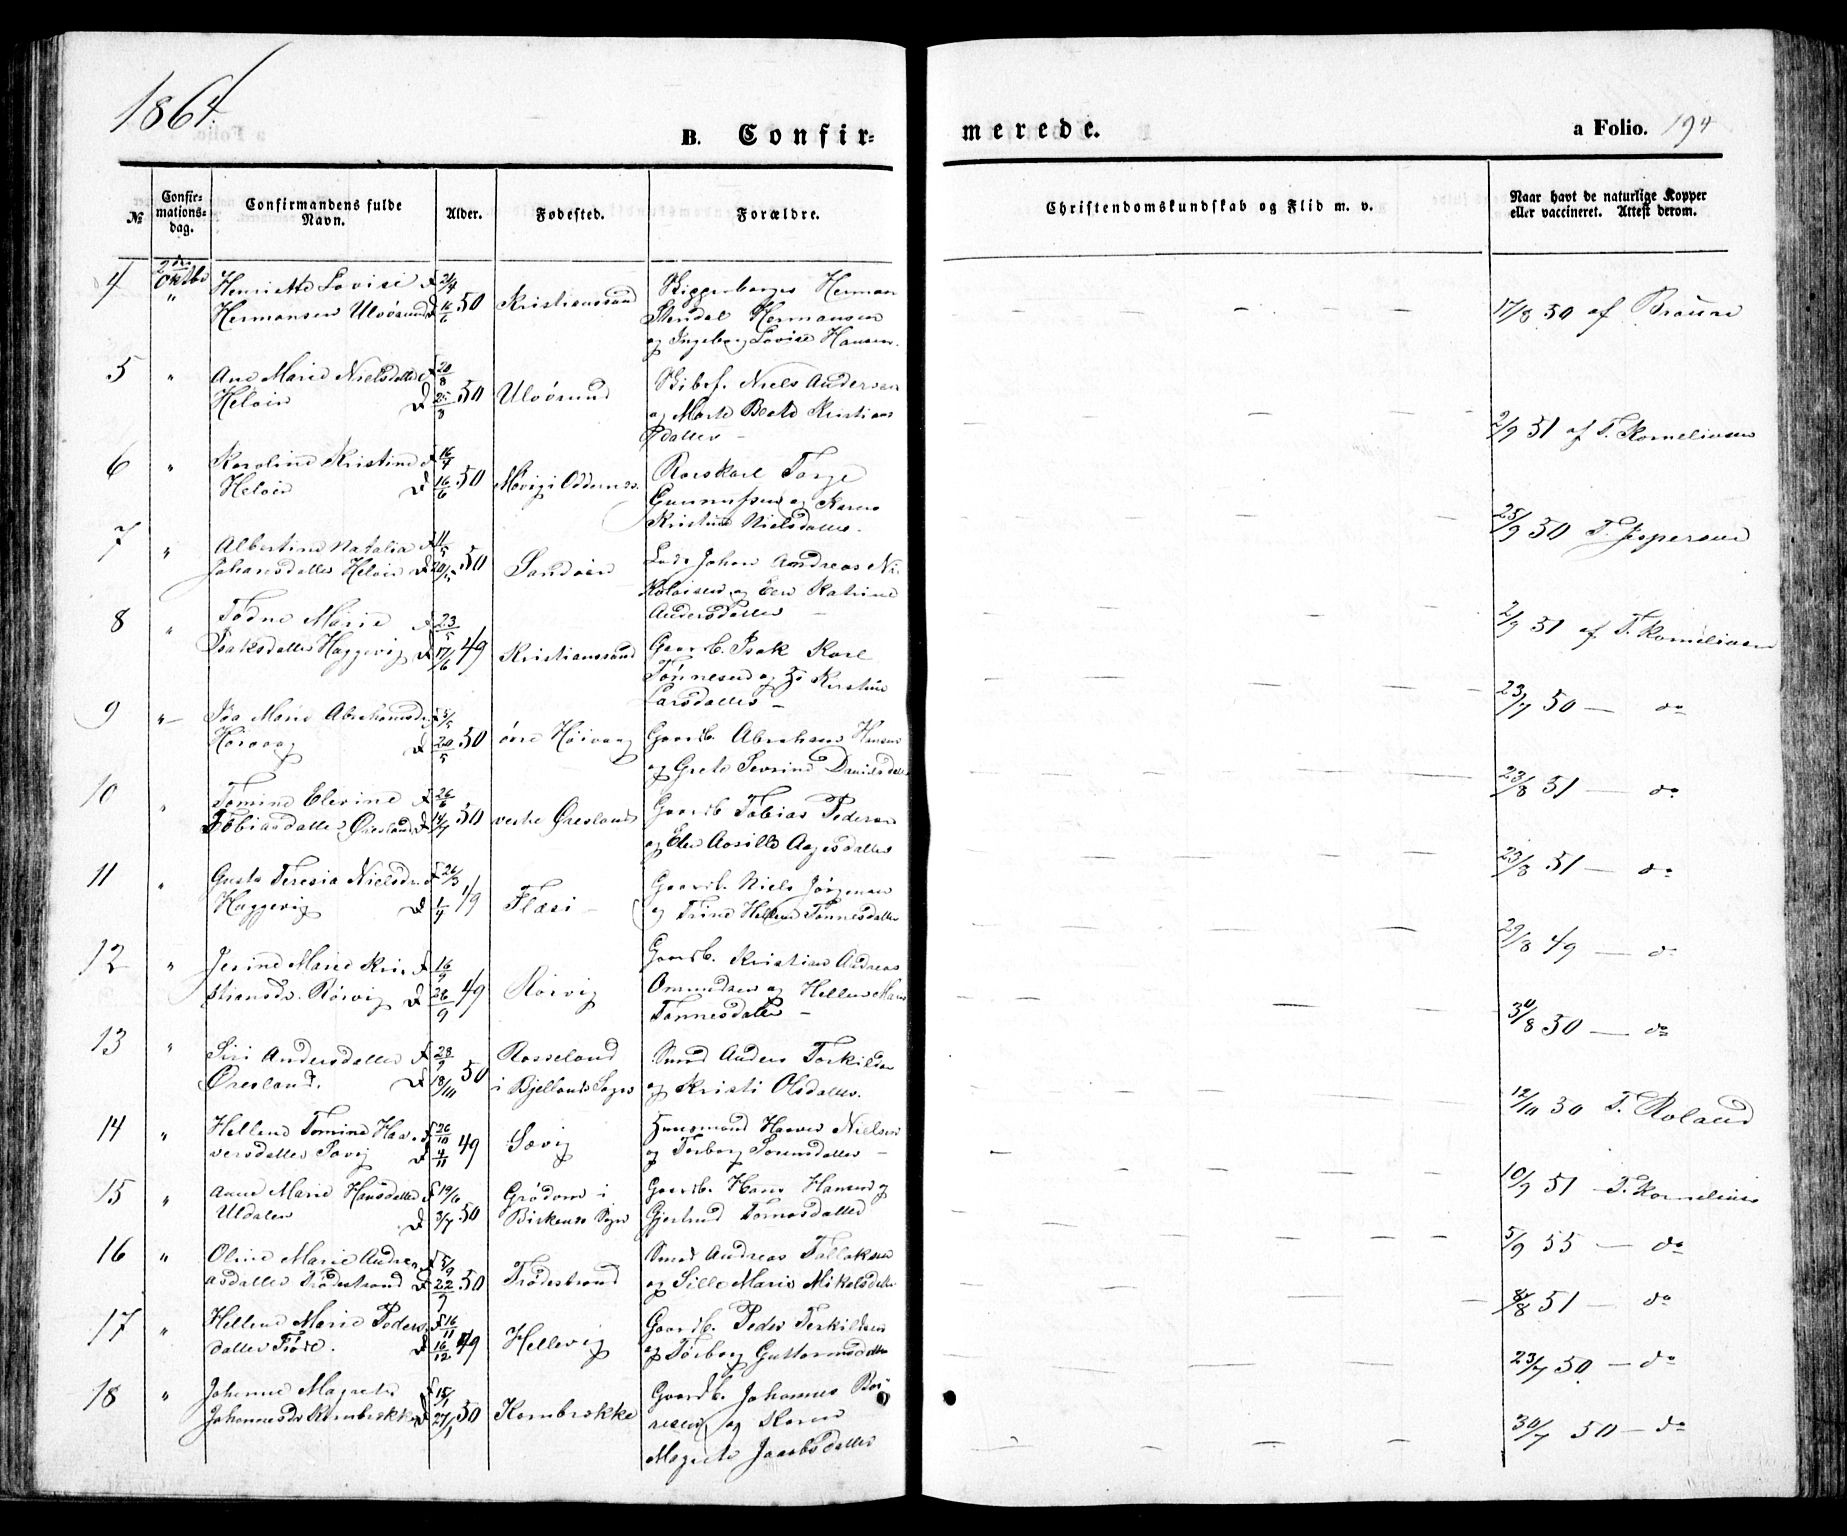 1864.
B. Confir- merede. a Folio. 194
№ Confir-mations-dag. Confirmandens fulde Navn. Alder. Fødested. Forældre. Christendomskundskab og Flid m. v. Naar havt de naturlige Kopper eller vaccineret. Attest derom.
4 2den Oktbr Henriette Lovise f 2/4
Hermansen Ulvøsund d 16/6 50 Kristianssand Herman
Stendal Hermansen
og Ingeborg Lovise Hansen.
17/8 50 af Braune
5 " Ane Marie Nielsdatter f 20/8
Heløen d 25/8 50 Ulvøsund Niels Andersen
og Marte Beate Kristians
datter
2/9 51 af T. Korneliusen
6 " Karoline Kristine f 16/4
Heløen d 16/6 50 Movig i Oddernes. Torje
Gunnufsen og Karen
Kristine Nielsdatter.
25/9 50 T. Jespersen
7 " Albertine Natalia f 11/5
Johansdatter Heløen d 50 Sandøen Lods Johan Andreas Ni-
kolaisen og Elen Katrine
Andersdatter
2/9 51 af T. Korneliusen
8 " Todne Marie f 23/5
Isaksdatter Haggevig d 17/6 49 Kristianssand Gaardb. Isak Karl
Tønnesen og Kirstine
Larsdatter
23/7 50 — do
9 " Marie Abrahamsdr f 5/5
Høivaag d 20/5 50 øvre Høivaag Gaardb. Abraham Hansen
og Grete Sevrine Danielsdatter
23/8 51 — do
10 " Tomine Elevine f 26/6
Tobiasdatter Øresland d 14/7 50 vestre Øresland Gaardb Tobias Pedersen
og Elen Aasille Aagesdatter
23/8 51 — do
11 " Gusta Teresia Nielsdr. f 26/3
Haggevig d 1/4 49 Flæsi Gaardb. Niels Jørgensen
og Trine Hellene Tønnesdatter
29/8 49 — do
12 " Jerine Marie Kri- f 16/9
stiansdr. Rørvig d 26/9 49 Rørvig Gaardb. Kristian Andreas
Omundsen og Hellene Marie
Tønnesdatter
30/8 50 — do
13 " Siri Andersdatter f 28/9
Øresland. d 18/10 50 Rosseland
i Bjellands Sogn Smed Anders Torkildsen
og Kristi Olsdatter.
12/10 50 T. Roland
14 " Hellene Tomine Haa- f 26/10
versdatter Sævig d 4/11 49 Sævig Huusmand Haaver Nielsen
og Torborg Sørensdatter
10/9 51 T. Kornelius
15 " Anne Marie Hansdatter f 19/6
Uldalen d 3/7 50 Grødum i
Birkenes Sogn Gaardb. Hans Hansen og
Gjertrud Tomasdatter
5/9 55 — do
16 " Oline Marie Andre- f 5/9
asdatter Trødestrand d 22/9 50 Trødestrand Smed Andreas Tallaksen
og Sille Marie Mikelsdatter
8/8 51 — do
17 " Hellene Marie Peders- f 16/11
datter Fiøre. d 16/12 49 Hellevig Gaardb. Peder Terkildsen
og Torborg Guttormsdatter
23/7 50 — do
18 " Johanne Magrete f 15/1
Johannesdr Kornbrække d 27/1 50 Kornbrække Gaardb. Johannes
og Karen
Magrete Jaakobsdatter
30/7 50 — do